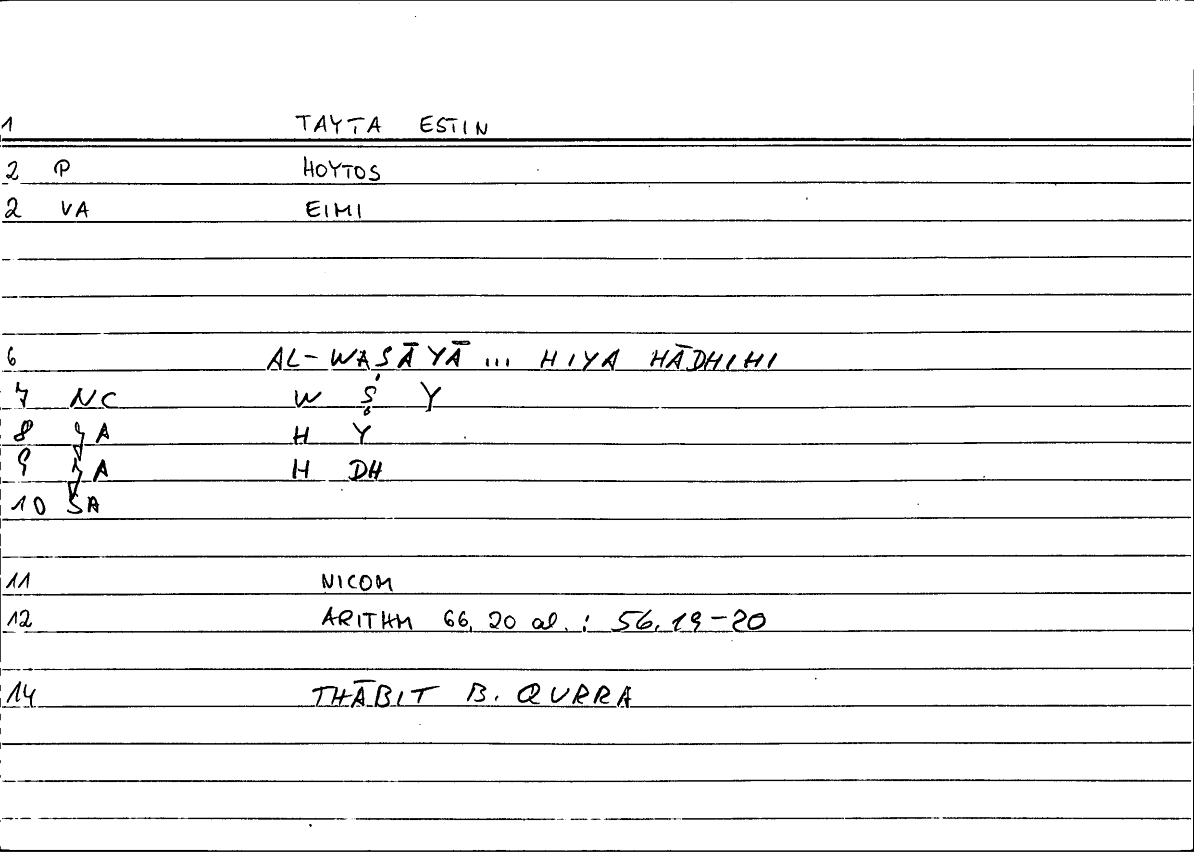 1 TAYTA ESTIN
2 P HOYTOS
2 VA EIMI
6 AL-WAṢĀYĀ ... HIYA HĀDHIHI
7 NC W Ṣ Y
8 A H Y
9 A H DH
10 SA
11 NICOM
12 ARITHM 66, 20 al. : 56.19-20
14 THĀBIT B. QURRA